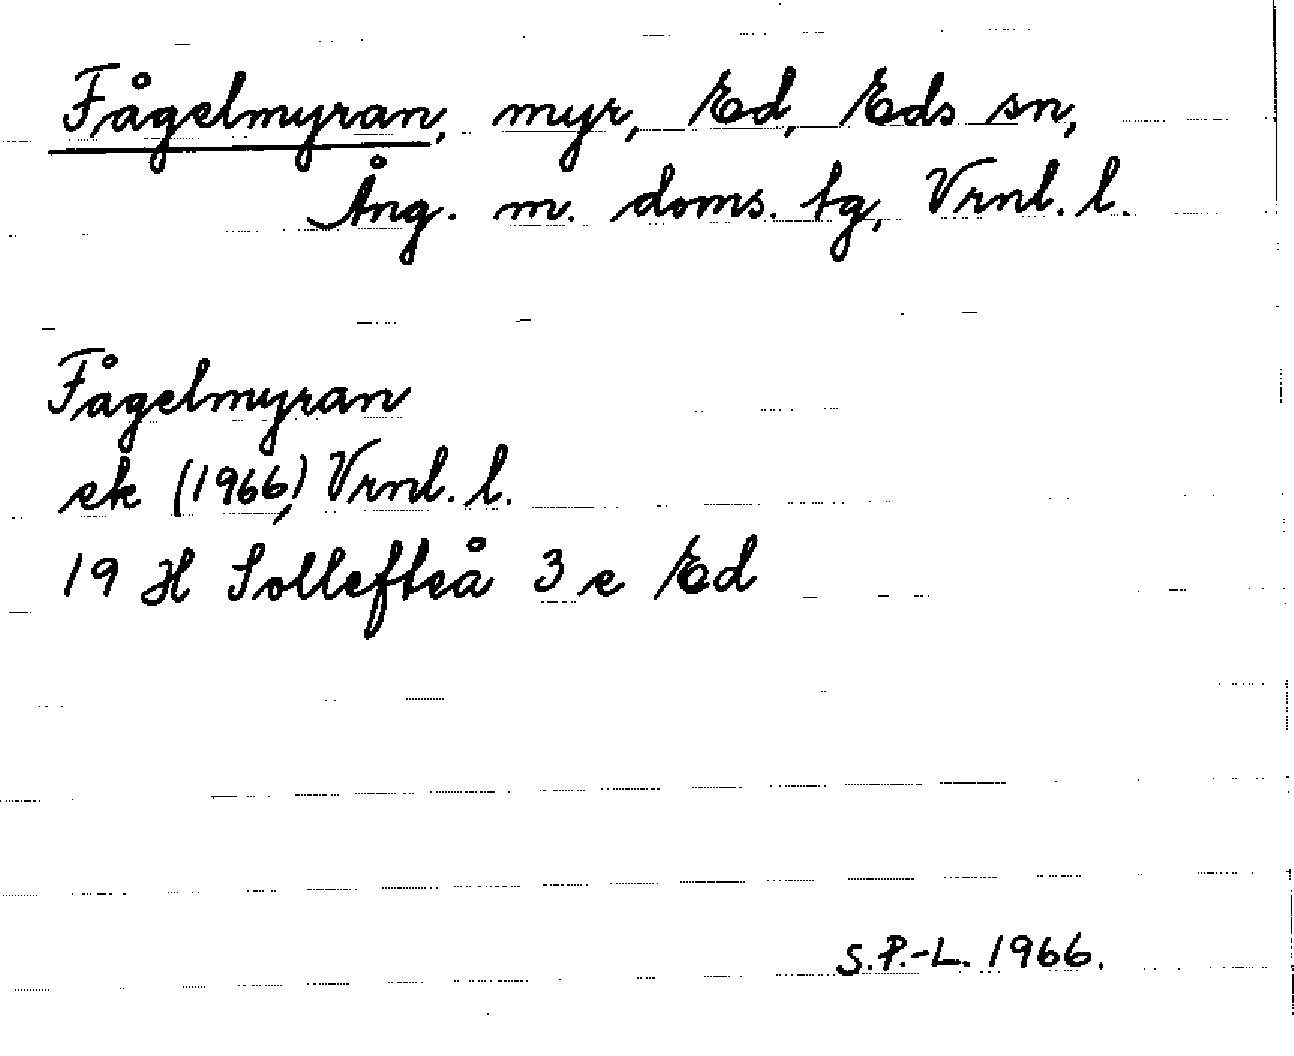 Fågelmyran, myr, Ed, Eds sn,
Ång. m. doms. tg, Vrnl. l.
Fågelmyran
ek (1966), Vrnl. l.
19 H Sollefteå 3 e Ed
S.P.-L. 1966.